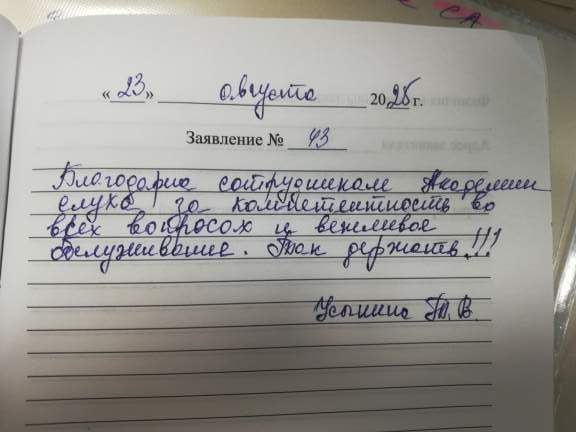 СА
«23» августа 2025 г.
Заявление № 43
Благодарна сотрудникам Академии
слуха за компетентность во
всех вопросах и вежливое
обслуживание. Так держать!!!
Усынина Т.В.